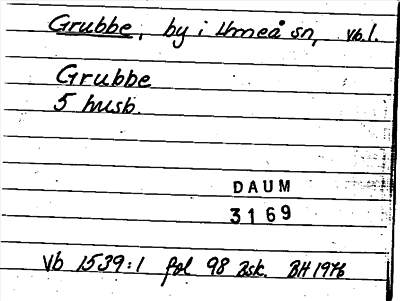 Grubbe, by i Umeå sn, vb. l.
Grubbe
5 husb.
DAUM
3169
Vb 1539:1 fol 98 2sk. BH 1976